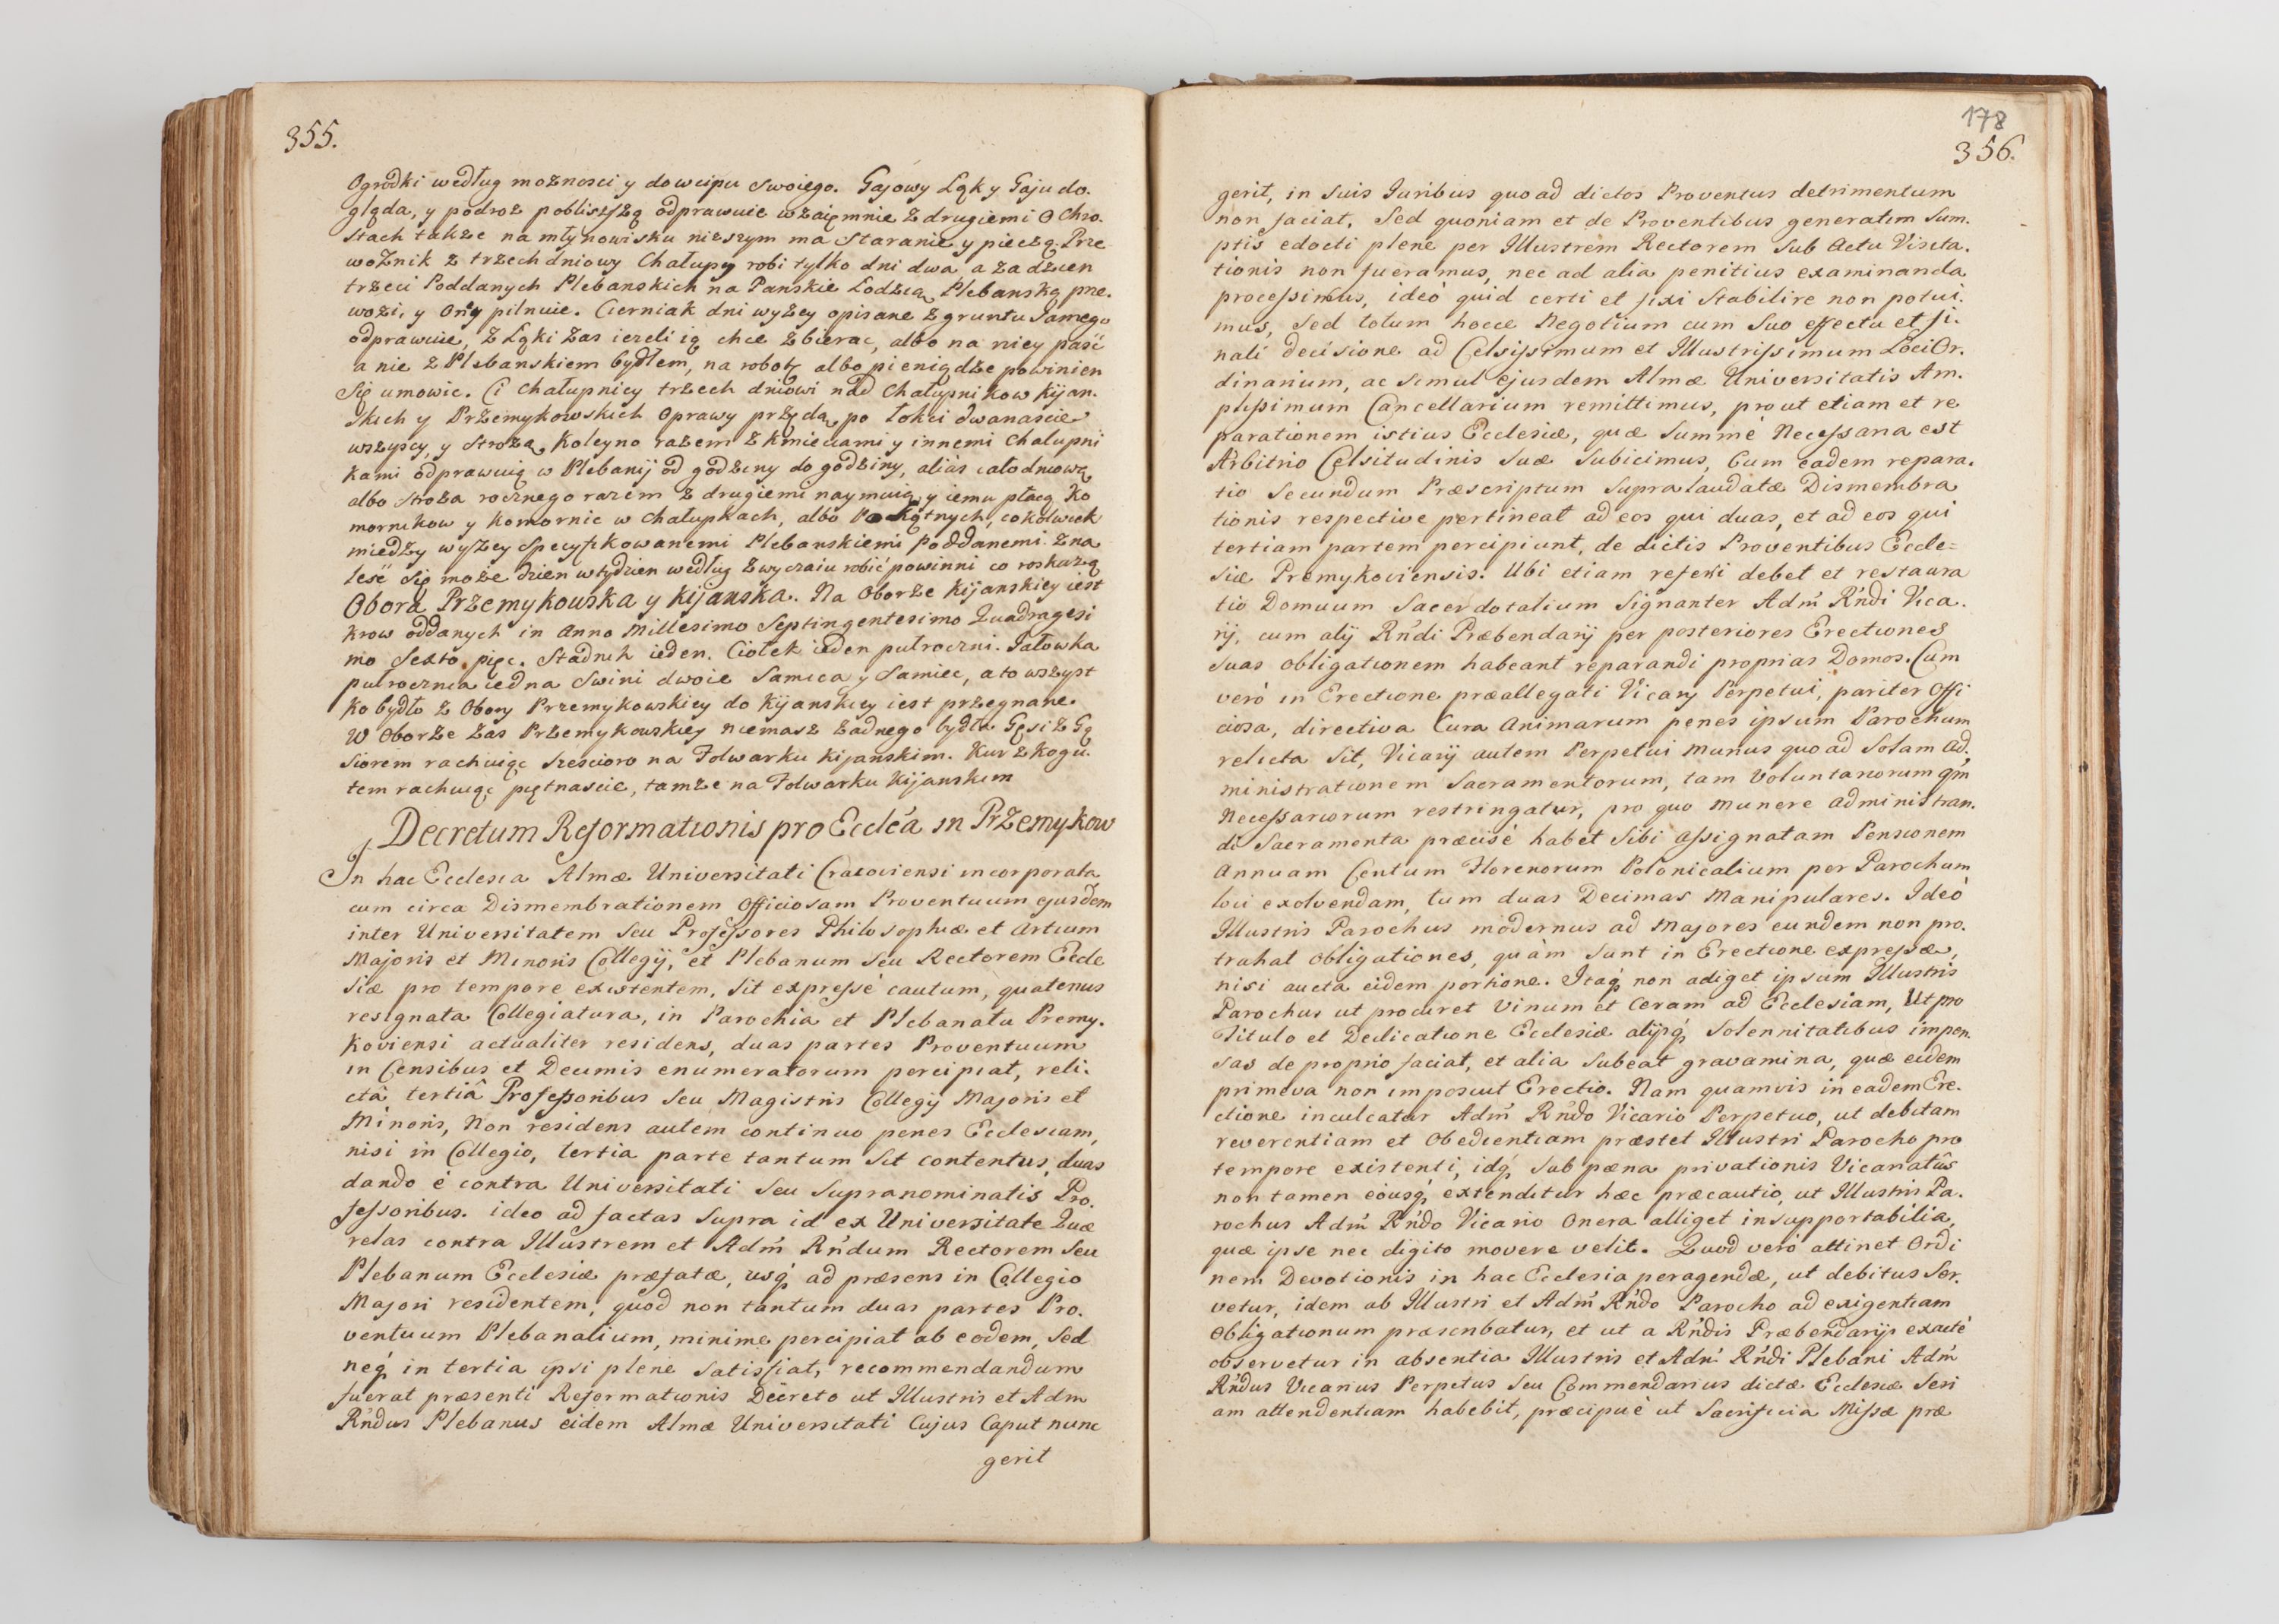 355.
Ogrodki według moznosci y dowcipu swoiego. Gajowy Łąk y Gaju do.
gląda, y podroz pobliszszą odprawuie wzaięmnie z drugiemi O Chro.
stach takze na młynowisku niższym ma staranie y pieczą. Prze
woznik z trzech dniowy Chałupy robi tylko dni dwa a za dzien
trzeci Poddanych Plebanskich na Panskie Łodzią Plebanską prze.
wozi, y oney pilnuie. Cierniak dni wyzey opisane z gruntu samego
odprawuie, z Łąki zas iezeli ią chce zbierac, albo na niey pasć
a nie z Plebanskiem bydłem, na robotę albo pieniądze powinien
się umowic. Ci chałupnicy trzech dniowi nad Chałupnikow Kijan.
skich y Przemykowskich oprawy przędą po łokci dwanascie
wszyscy, y strozą koleyno razem z kmieciami y innemi chałupni
kami odprawuią w Plebanij od godziny do godziny, aliàs całodniową
albo stroza rocznego razem z drugiemi naymuią y iemu płacą. Ko
mornikow y komornic w chałupkach, albo Pokątnych, cokolwiek
miedzy wyszey specyfikowanemi Plebanskiemi poddanemi zna
lesć się moze dzien w tydzien według zwyczaiu robić powinni co roskazą
Obora Przemykowska y Kijanska. Na Oborze Kijanskiey iest
krow oddanych in Anno Millesimo Septingentesimo Quadragesi
mo Sexto pięc. Stadnik ieden. Ciołek ieden pułroczni. Jałowka
pułrocznia iedna Swini dwoie Samica y Samiec, a to wszyst
ko bydło z Obory Przemykowskiey do Kijanskiey iest przegnane.
W Oborze zas Przemykowskiey niemasz zadnego bydła Gęsi z Gę
siorem rachuiąc szescioro na Folwarku Kijanskim. Kur z kogu.
tem rachuiąc piętnascie, tamze na Folwarku Kijanskim
Decretum Reformationis pro Ecclâ in Przemykow
In hac Ecclesia Almæ Universitati Cracoviensi incorporata
cum circa Dismembrationem Officiosam Proventuum ejusdem
inter Universitatem Seu Professores Philosophiæ et Artium
Majoris et Minoris Collegij, et Plebanum Seu Rectorem Eccle
siæ pro tempore existentem, sit expressè cautum, quatenus
resignata Collegiatura, in Parochia et Plebanatu Premy.
koviensi actualiter residens, duas partes Proventuum
in Censibus et Decimis enumeratorum percipiat, reli.
ctâ tertiâ Professoribus Seu Magistris Collegij Majoris et
Minoris, Non residens autem continuo penes Ecclesiam,
nisi in Collegio, tertia parte tantum sit contentus, duas
dando è contra Universitati Seu supranominatis Pro.
fessoribus. ideo ad factas supra id ex Universitate Quæ
relas contra Illustrem et Adm̃ Rńdum Rectorem Seu
Plebanum Ecclesiæ præfatæ, usq́ ad præsens in Collegio
Majori residentem, quod non tantum duas partes Pro.
ventuum Plebanalium, minime percipiat ab eodem, sed
neq́ in tertia ipsi plene satisfiat, recommendandum
fuerat præsenti Reformationis Decreto ut Illustris et Adm
Rńdus Plebanus eidem Almæ Universitati Cujus Caput nunc
gerit
178
356.
gerit, in suis Juribus quo ad dictos Proventus detrimentum
non faciat, Sed quoniam et de Proventibus generatim sum.
ptis edocti plene per Illustrem Rectorem sub Actu Visita.
tionis non fueramus, nec ad alia penitius examinanda
processimus, ideò quid certi et fixi Stabilire non potui.
mus, sed totum hocce Negotium cum suo effectu et fi.
nali decisione ad Celsissimum et Illustrissimum Loci Or.
dinarium, ac simul ejusdem Almæ Universitatis Am.
plissimum Cancellarium remittimus, prout etiam et re
parationem istius Ecclesiæ, quæ summè Necessaria est
Arbitrio Celsitudinis Suæ subicimus, Cum eadem repara.
tio secundum Præscriptum supralaudatæ Dismembra
tionis respective pertineat ad eos qui duas, et ad eos qui
tertiam partem percipiunt, de dictis Proventibus Eccle=
siæ Premykoviensis. Ubi etiam referri debet et restaura
tio Domuum Sacerdotalium signanter Adm̃ Rńdi Vica.
rij, cum alij Rńdi Præbendarij per posteriores Erectiones
suas obligationem habeant reparandi proprias Domos. Cum
verò in Erectione præallegati Vicarij Perpetui, pariter Offi
ciosa, directiva Cura Animarum penes ipsum Parochum
relicta sit, Vicarij autem Perpetui munus quo ad solam Ad.
ministrationem Sacramentorum, tam voluntariorum qm̃
Necessariorum restringatur, pro quo munere administran.
di Sacramenta præcisè habet sibi assignatam Pensionem
Annuam Centum Florenorum Polonicalium per Parochum
loci exolvendam, tum duas Decimas Manipulares. Ideò
Illustris Parochus modernus ad Majores eundem non pro.
trahat obligationes, quàm sunt in Erectione expressæ,
nisi aucta eidem portione. Itaq́ non adiget ipsum Illustris
Parochus ut procuret Vinum et Ceram ad Ecclesiam, Ut pro
Titulo et Dedicatione Ecclesiæ alijsq́ Solennitatibus impen.
sas de proprio faciat, et alia subeat gravamina, quæ eidem
primæva non imposuit Erectio. Nam quamvis in eadem Ere.
ctione inculcatur Adm̃ Rńdo Vicario Perpetuo, ut debitam
reverentiam et obedientiam præstet Illustri Parocho pro
tempore existenti, idq́ sub pœna privationis Vicariatûs
non tamen eòusq́ extenditur hæc præcautio, ut Illustris Pa.
rochus Adm̃ Rńdo Vicario Onera alliget insupportabilia,
quæ ipse nec digito movere velit. Quod verò attinet Ordi
nem Devotionis in hac Ecclesia peragendæ, ut debitus ser.
vetur, idem ab Illustri et Adm̃ Rńdo Parocho ad exigentiam
Obligationum præscribatur, et ut a Rńdis Præbendarijs exactè
observetur in absentia Illustris et Adm̃ Rńdi Plebani Adm̃
Rńdus Vicarius Perpetus seu Commendarius dictæ Ecclesiæ seri
am attendentiam habebit, præcipuè ut Sacrificia Missæ præ